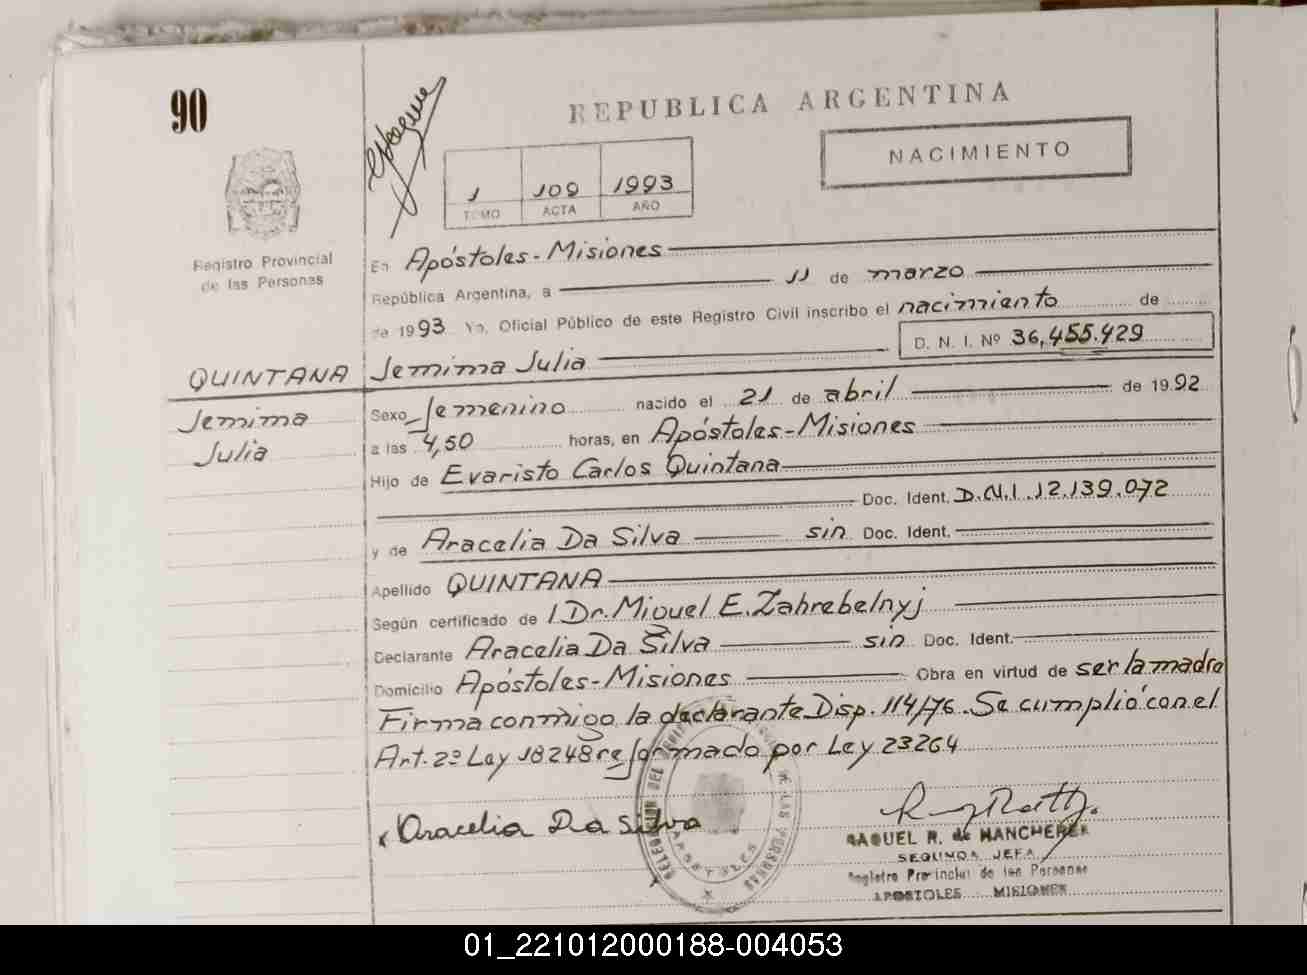 90
REPUBLICA ARGENTINA
NACIMIENTO
1 109 1993
TOMO ACTA AÑO
Registro Provincial
de las Personas
En Apóstoles - Misiones
República Argentina, a 11 de marzo
de 1993 Yo, Oficial Público de este Registro Civil inscribo el nacimiento de
D. N. I. Nº 36,455.429
QUINTANA Jemima Julia
Jemima
Julia
Sexo femenino nacido el 21 de abril de 1992
a las 4,50 horas, en Apóstoles - Misiones
Hijo de Evaristo Carlos Quintana
Doc. Ident. D.N.I. 12.139.072
y de Aracelia Da Silva sin Doc. Ident.
Apellido QUINTANA
Según certificado de Dr. Miguel E. Zahrebelnyj
Declarante Aracelia Da Silva sin Doc. Ident.
Domicilio Apóstoles - Misiones Obra en virtud de ser la madre
Firma conmigo la declarante Disp. 114/76. Se cumplió con el
Art. 2º Ley 18248 reformado por Ley 23264
Aracelia Da Silva
RAQUEL R. de MANCHEREK
SEGUNDA JEFA
Registro Provincial de las Personas
APOSTOLES MISIONES
DE LAS PERSONAS
APOSTOLES
01_221012000188-004053